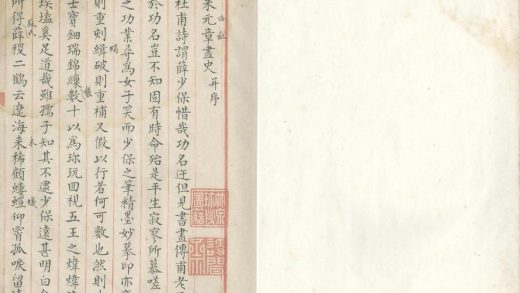 米元章畫史并序
杜甫詩謂薛少保惜哉功名迕但見書畫傳甫老
於功名豈不知固有時命殆是平生寂寥所慕嗟
之功業尋為女子笑而少保之筆精墨妙摹印亦
則重刺緝破則重補又假以行者何可數也然則
士寶鈿瑞錦繅數十以為珍玩回視五王之煒煒
埃壒奚足道哉雖孺子知其不逮少保遠甚明白
所得薛稷二鶴云遼海未稀顧螻蟻仰霄孤唳留